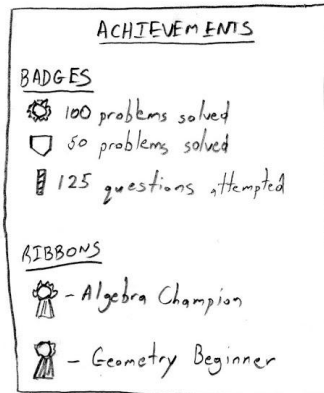 ACHIEVEMENTS
BADGES
100 problems solved
50 problems solved
125 questions attempted
RIBBONS
- Algebra Champion
- Geometry Beginner